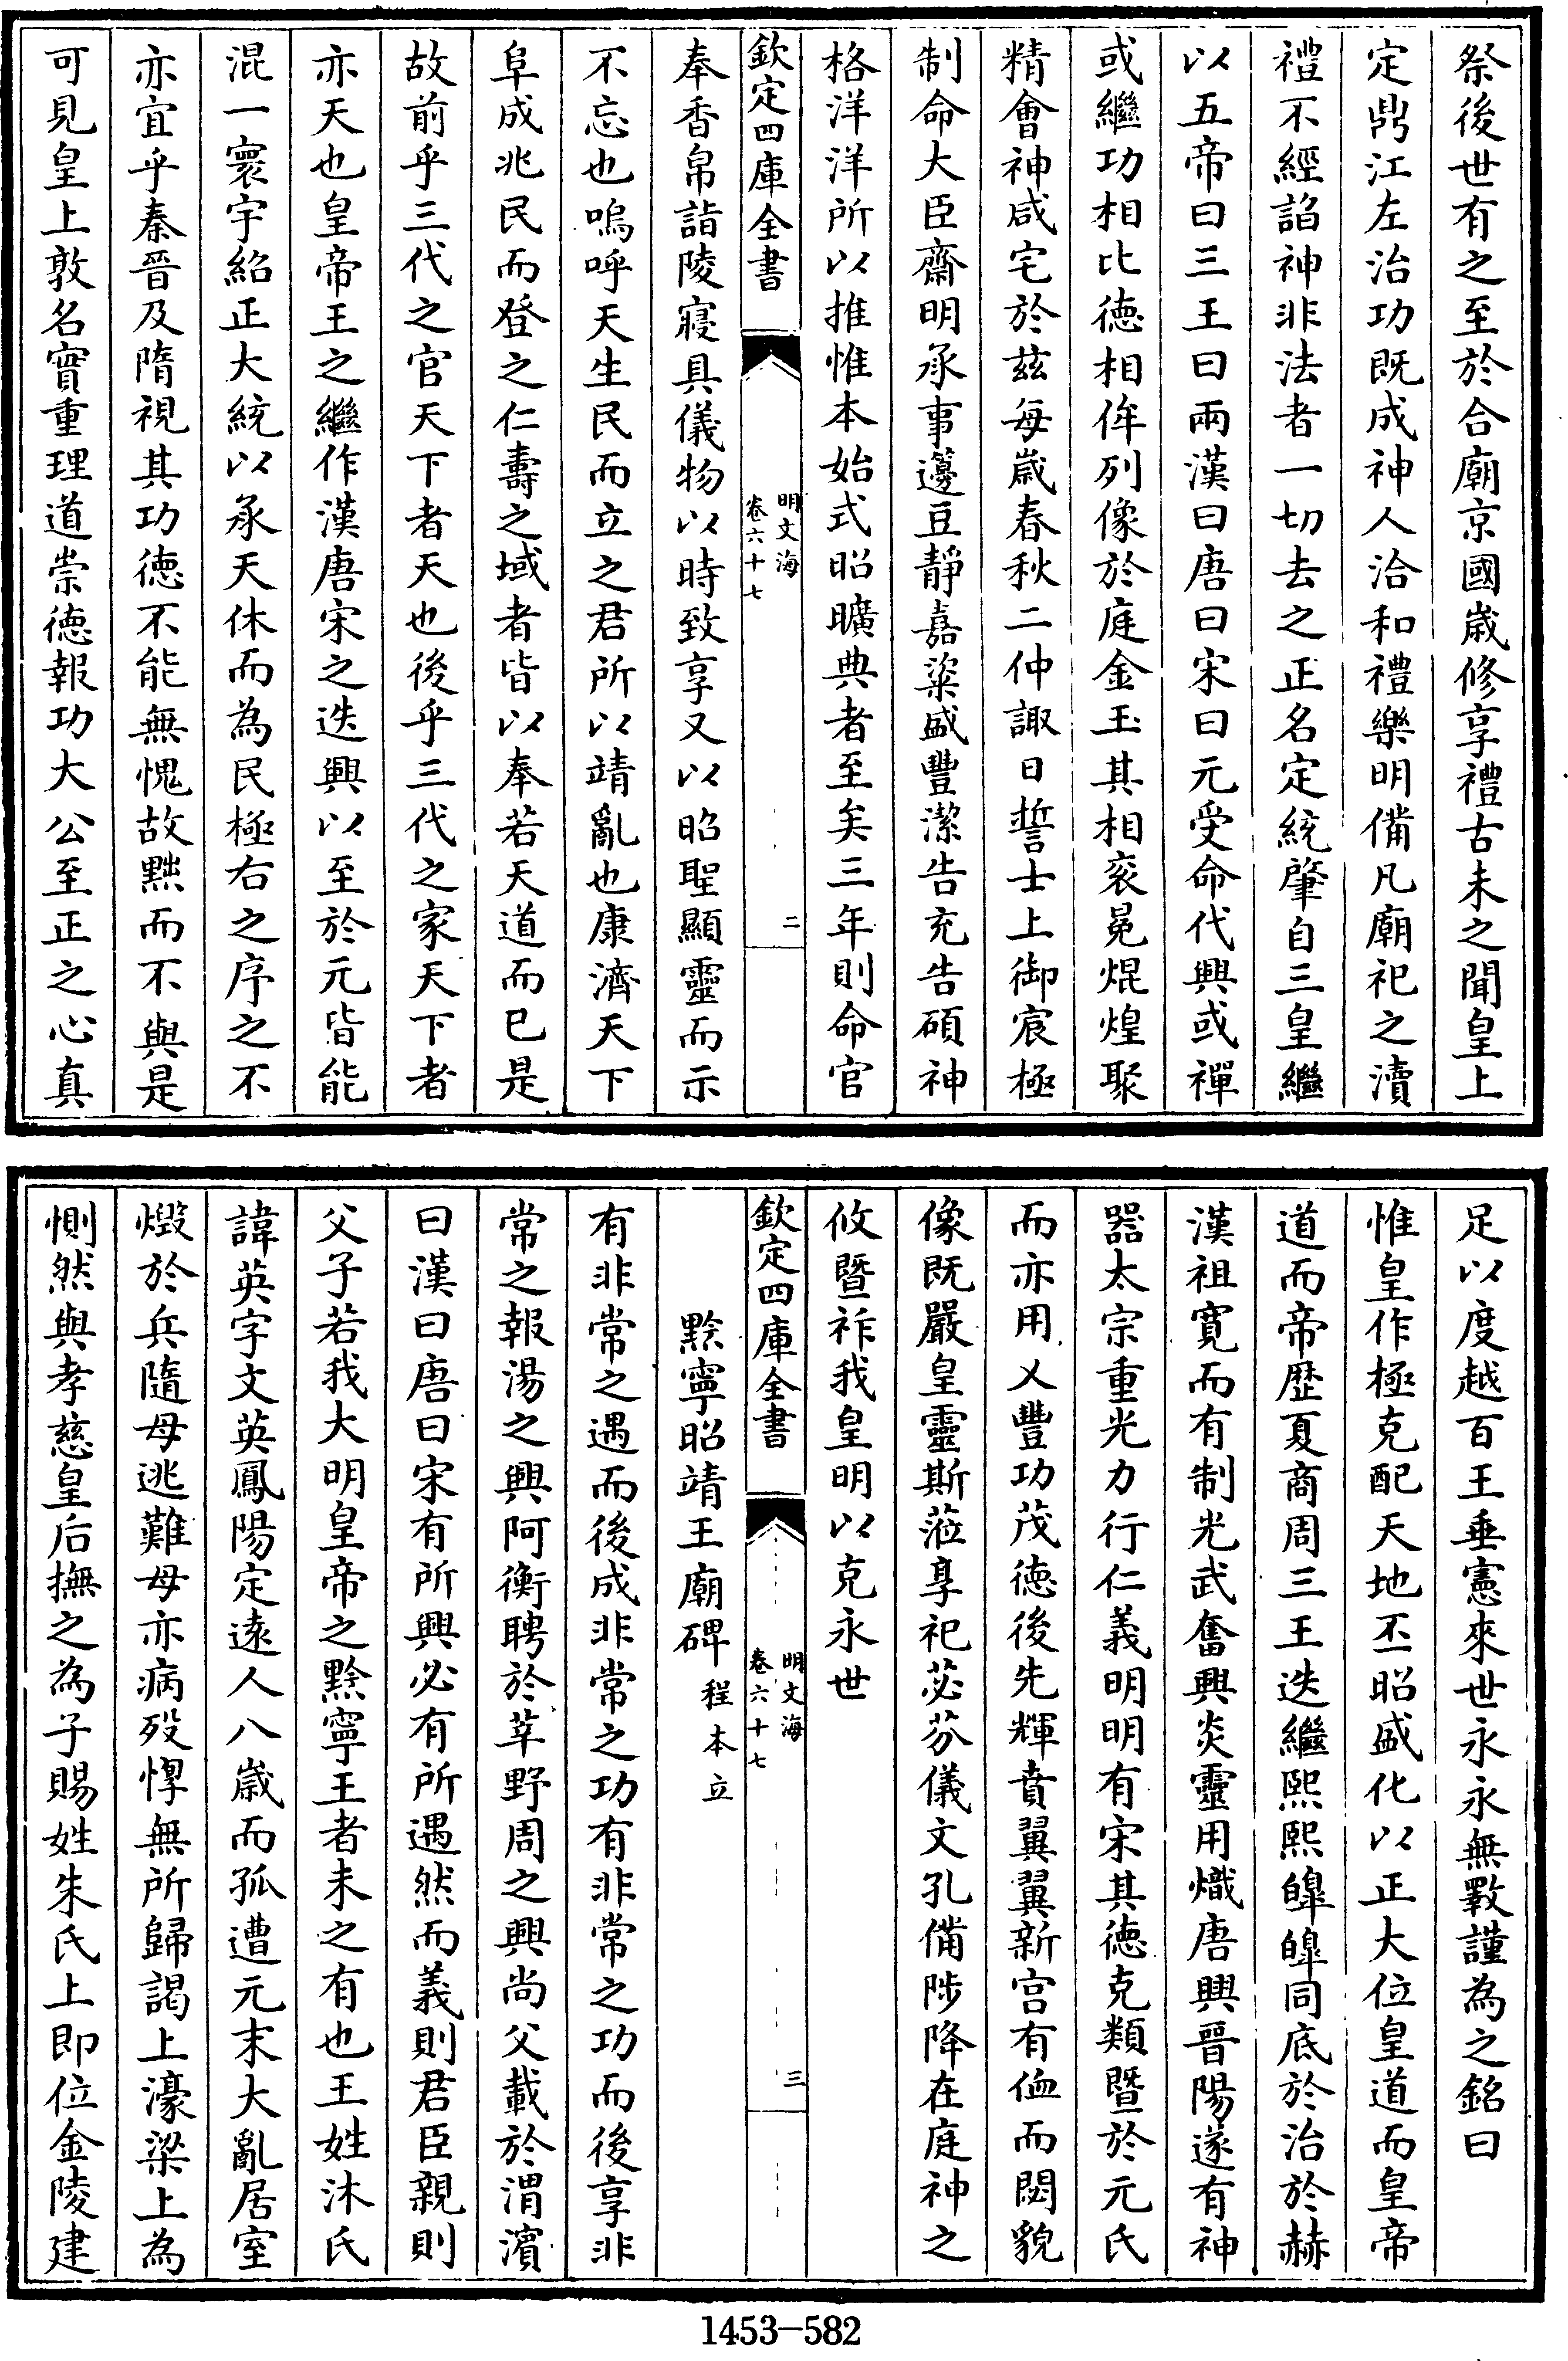 祭後世有之至於合廟京國歲修享禮古未之聞皇上
定鼎江左治功既成神人洽和禮樂明備凡廟祀之瀆
禮不經諂神非法者一切去之正名定統肇自三皇繼
以五帝曰三王曰兩漢曰唐曰宋曰元受命代興或禪
或繼功相比德相侔列像於庭金玉其相衮冕焜煌聚
精會神咸宅於茲每歲春秋二仲諏日誓士上御宸極
制命大臣齋明承事籩豆靜嘉粢盛豐潔告充告碩神
格洋洋所以推惟本始式昭曠典者至矣三年則命官
欽定四庫全書
明文海
卷六十七
二
奉香帛詣陵寢具儀物以時致享又以昭聖顯靈而示
不忘也嗚呼天生民而立之君所以靖亂也康濟天下
阜成兆民而登之仁壽之域者皆以奉若天道而已是
故前乎三代之官天下者天也後乎三代之家天下者
亦天也皇帝王之繼作漢唐宋之迭興以至於元皆能
混一寰宇紹正大統以承天休而為民極右之序之不
亦宜乎秦晉及隋視其功德不能無愧故黜而不與是
可見皇上敦名實重理道崇德報功大公至正之心真
足以度越百王垂憲來世永永無斁謹為之銘曰
惟皇作極克配天地丕昭盛化以正大位皇道而皇帝
道而帝歷夏商周三王迭繼熙熙皞皞同底於治於赫
漢祖寬而有制光武奮興炎靈用熾唐興晉陽遂有神
器太宗重光力行仁義明明有宋其德克類暨於元氏
而亦用乂豐功茂德後先輝賁翼翼新宫有侐而閟貌
像既嚴皇靈斯蒞享祀苾芬儀文孔備陟降在庭神之
攸暨祚我皇明以克永世
欽定四庫全書
明文海
卷六十七
三
黔寧昭靖王廟碑 程本立
有非常之遇而後成非常之功有非常之功而後享非
常之報湯之興阿衡聘於莘野周之興尚父載於渭濱
曰漢曰唐曰宋有所興必有所遇然而義則君臣親則
父子若我大明皇帝之黔寧王者未之有也王姓沐氏
諱英字文英鳳陽定遠人八歲而孤遭元末大亂居室
燬於兵隨母逃難母亦病歿惸無所歸謁上濠梁上為
惻然與孝慈皇后撫之為子賜姓朱氏上即位金陵建
1453-582